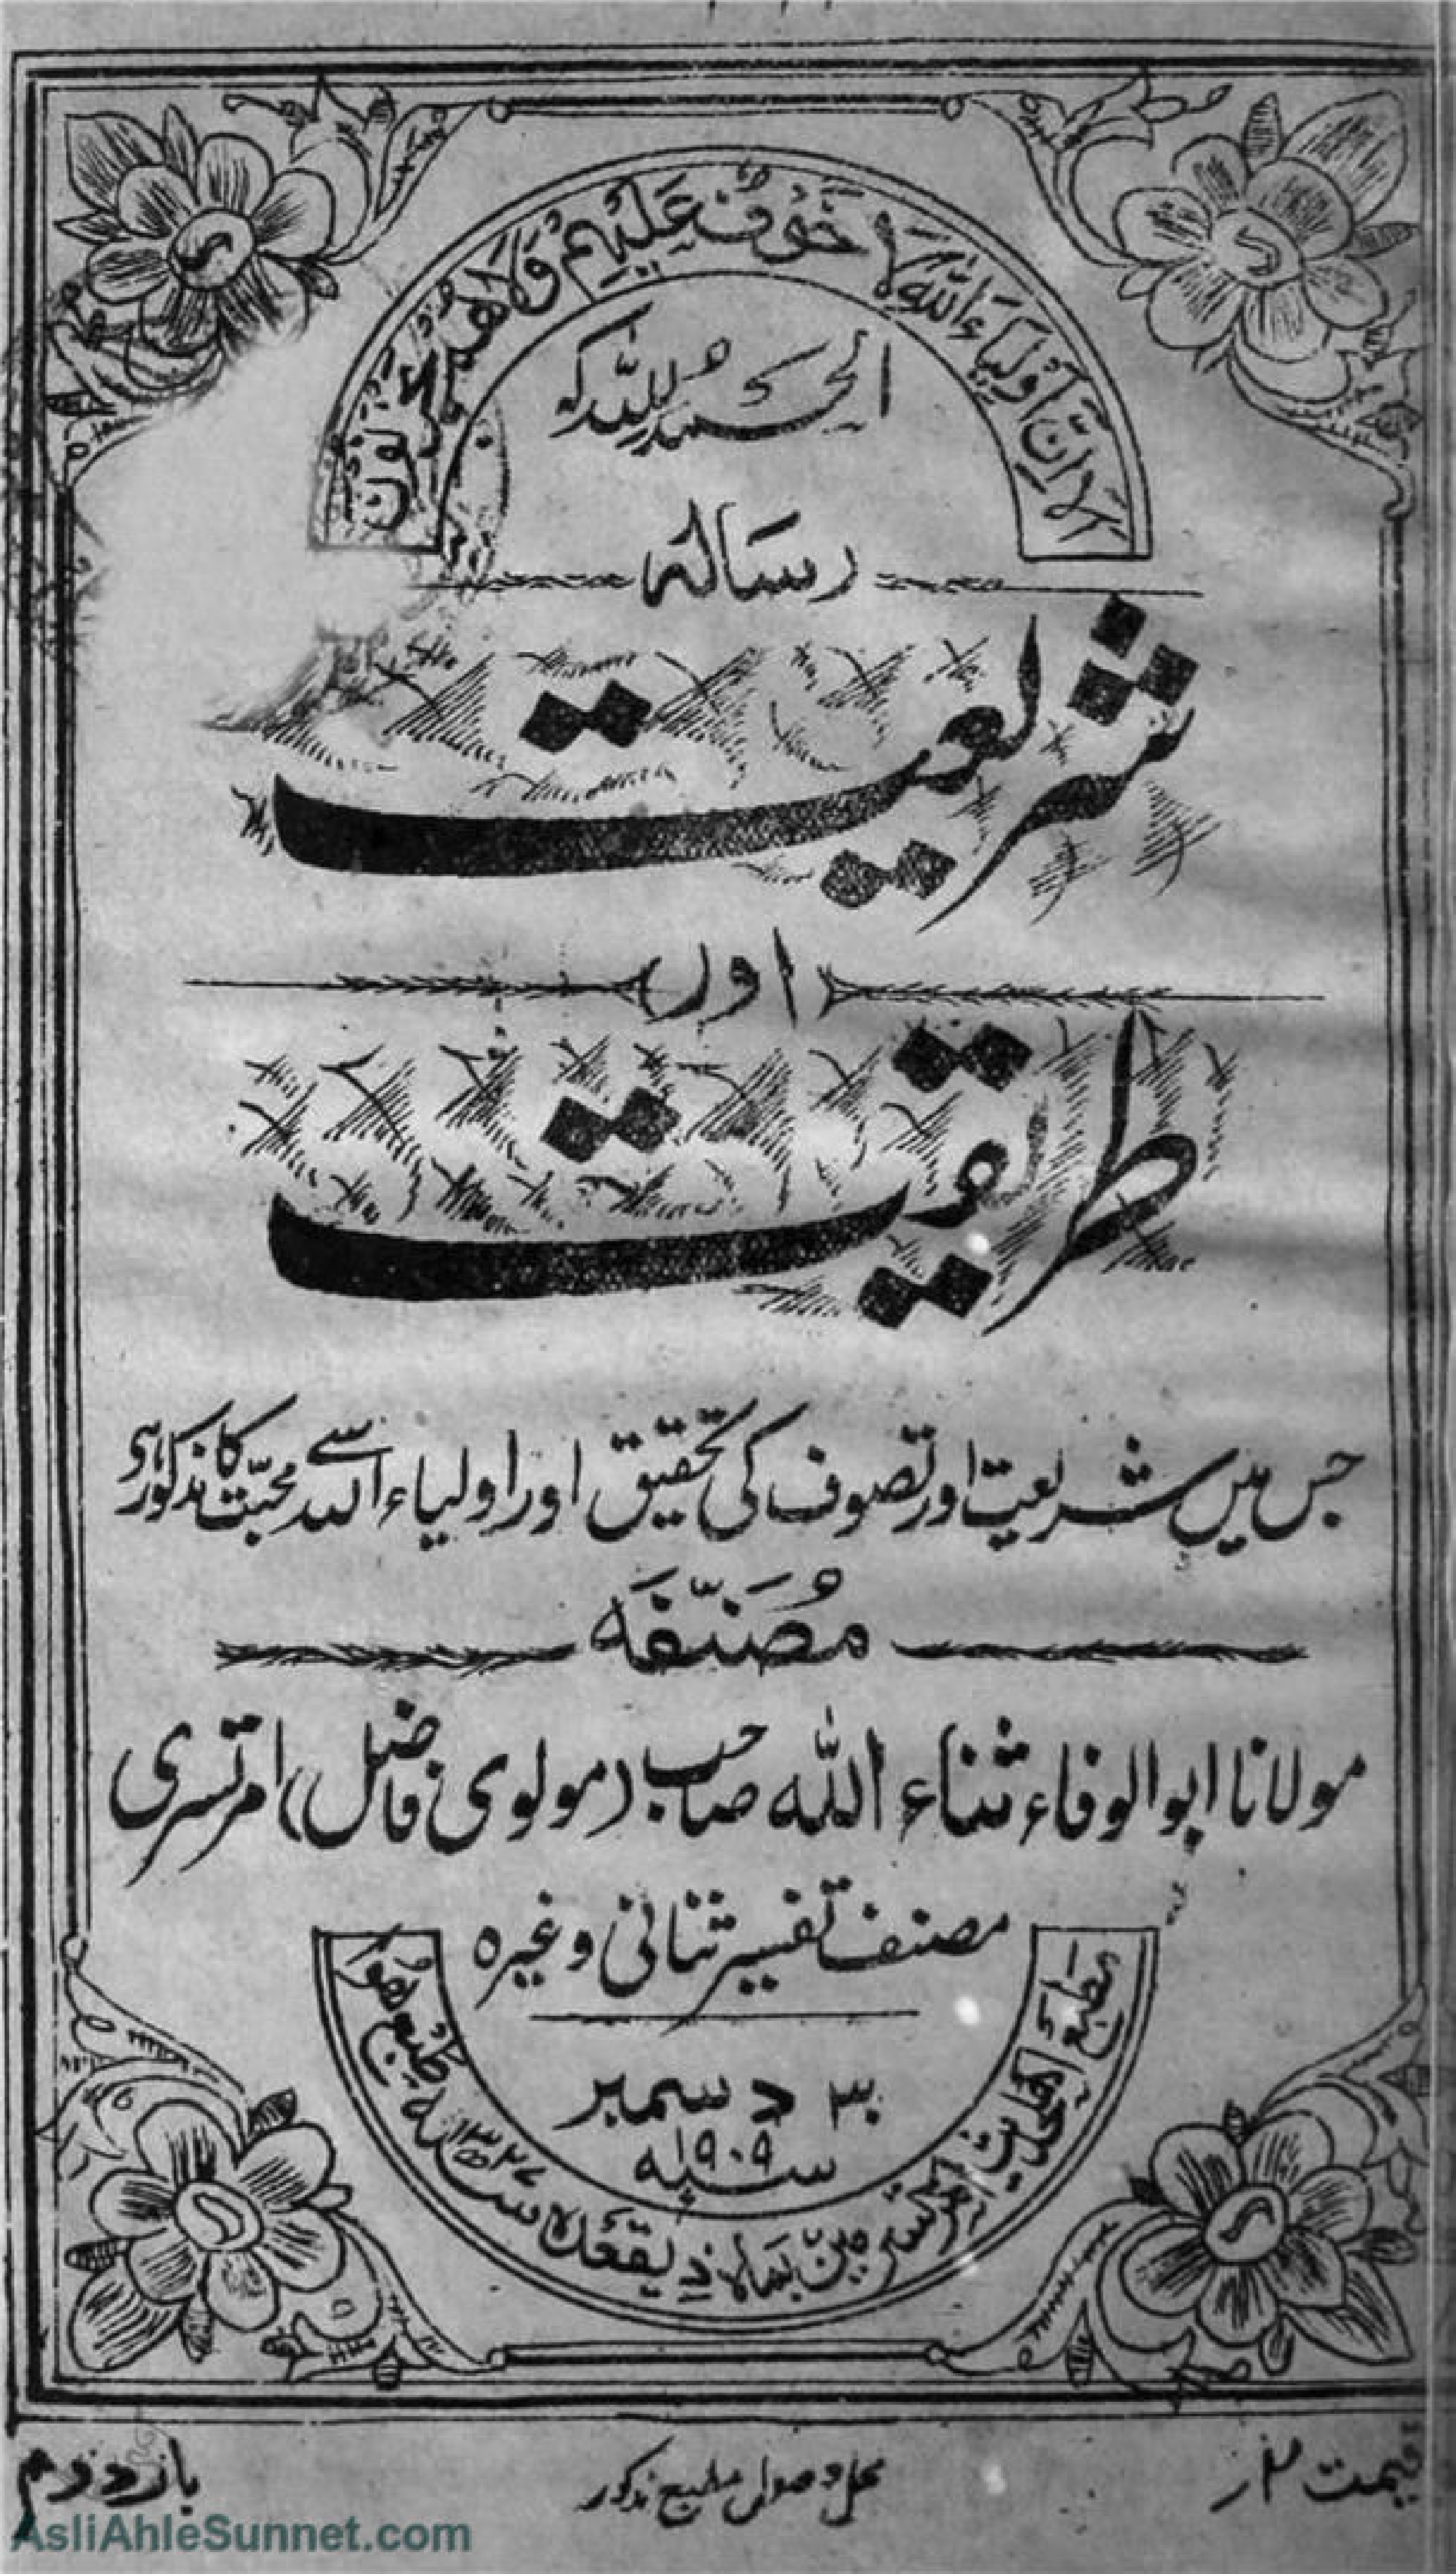 الا ان اولیاء اللہ لا خوف علیہم ولا ھم یحزنون
الحمد للہ کہ
رسالہ
شریعت
(اور)
طریقت
جس میں شریعت اور تصوف کی تحقیق اور اولیاء اللہ سے محبت کا مذکور ہے
مُصَنَّفَہ
مولانا ابو الوفاء ثناء اللہ صاحب (مولوی فاضل) امرتسری
مصنف تفسیر ثنائی وغیرہ
۳۰ دسمبر
سنہ ۱۹۰۹
مطبع اہلحدیث امرتسر میں بماہ ذیقعدہ سنہ ۱۳۲۷ھ طبع ہوا
قیمت ۲ر
محل وصول مطبع مذکور
بار دوم
AsliAhleSunnet.com